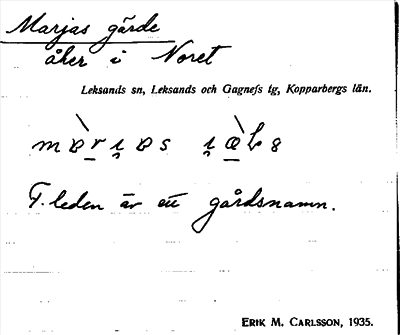 Marjas gärde
åker i Noret
Leksands sn, Leksands och Gagnefs tg, Kopparbergs län.
F. leden är ett gårdsnamn.
ERIK M. CARLSSON, 1935.